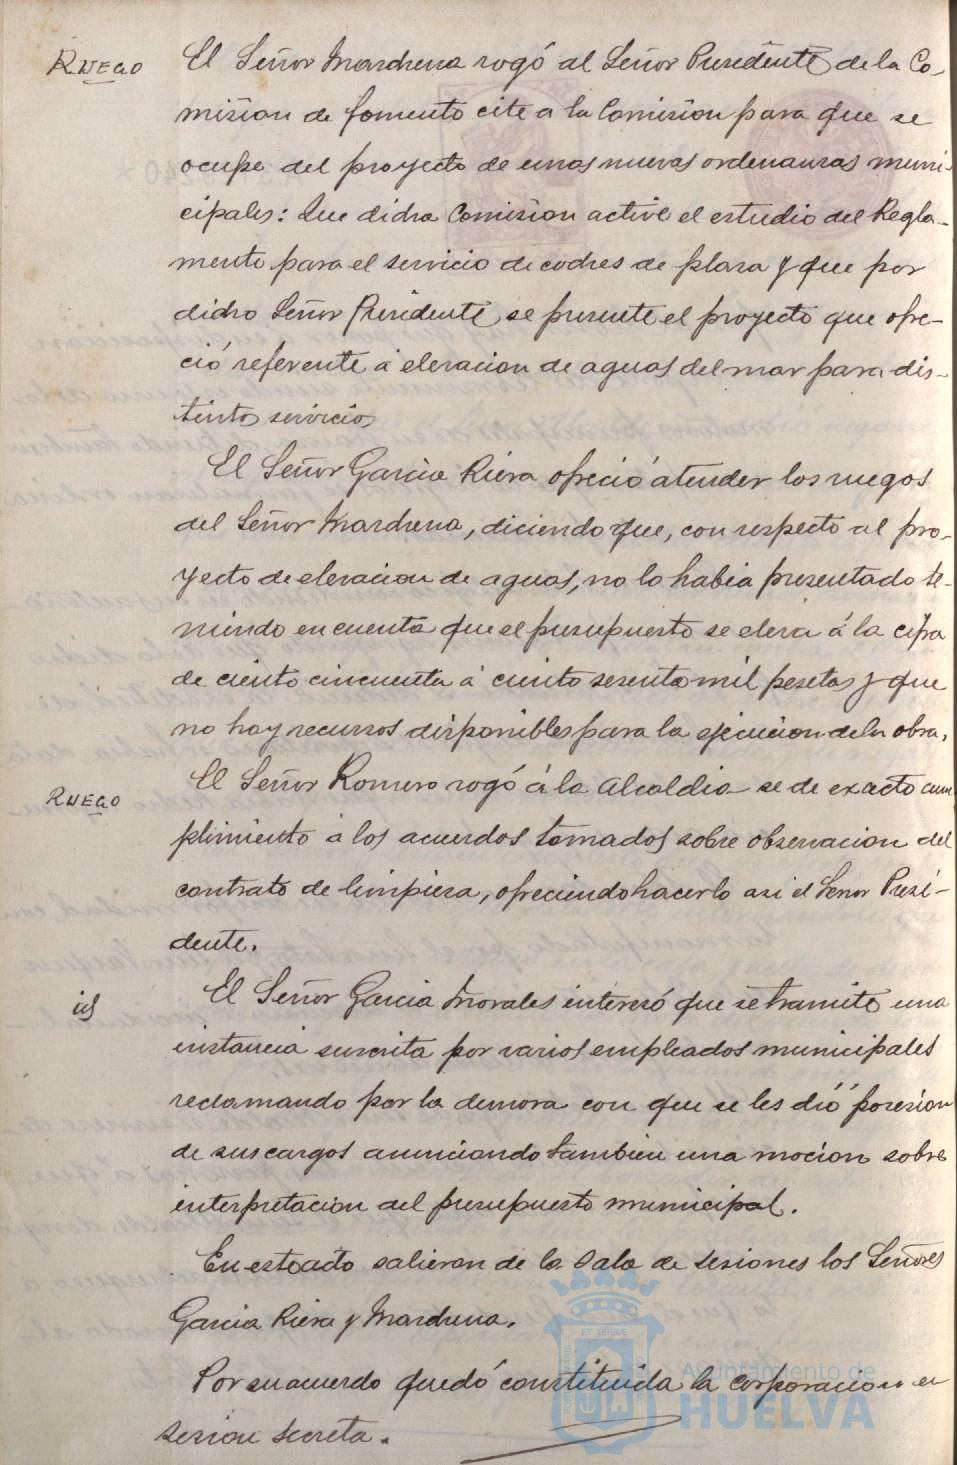 RUEGO
El Señor Marchena rogó al Señor Presidente de la Co-
mision de fomento cite a la Comision para que se
ocupe del proyecto de unas nuevas ordenanzas muni-
cipales: Que dicha Comision active el estudio del Regla-
mento para el servicio de coches de plaza y que por
dicho Señor Presidente, se presente el proyecto que ofre-
ció referente á elevacion de aguas del mar para dis-
tintos servicios
El Señor Garcia Riera ofreció atender los ruegos
del Señor Marchena, diciendo que, con respecto al pro-
yecto de elevacion de aguas, no lo habia presentado te-
niendo en cuenta que el presupuesto se eleva á la cifra
de ciento cincuenta á ciento sesenta mil pesetas y que
no hay recursos disponibles para la ejecucion de la obra.
RUEGO
El Señor Romero rogó á la Alcaldia se de exacto cum-
plimiento á los acuerdos tomados sobre observacion del
contrato de limpieza, ofreciendo hacerlo asi el Señor Presi-
dente.
id
El Señor Garcia Morales interesó que se tramite una
instancia suscrita por varios empleados municipales
reclamando por la demora con que se les dió posesion
de sus cargos anunciando tambien una mocion sobre
interpretacion del presupuesto municipal.
En este acto salieron de la Sala de Sesiones los Señores
Garcia Riera y Marchena.
Por su acuerdo quedó constituida la corporacion en
sesion secreta.
Ayuntamiento de
HUELVA